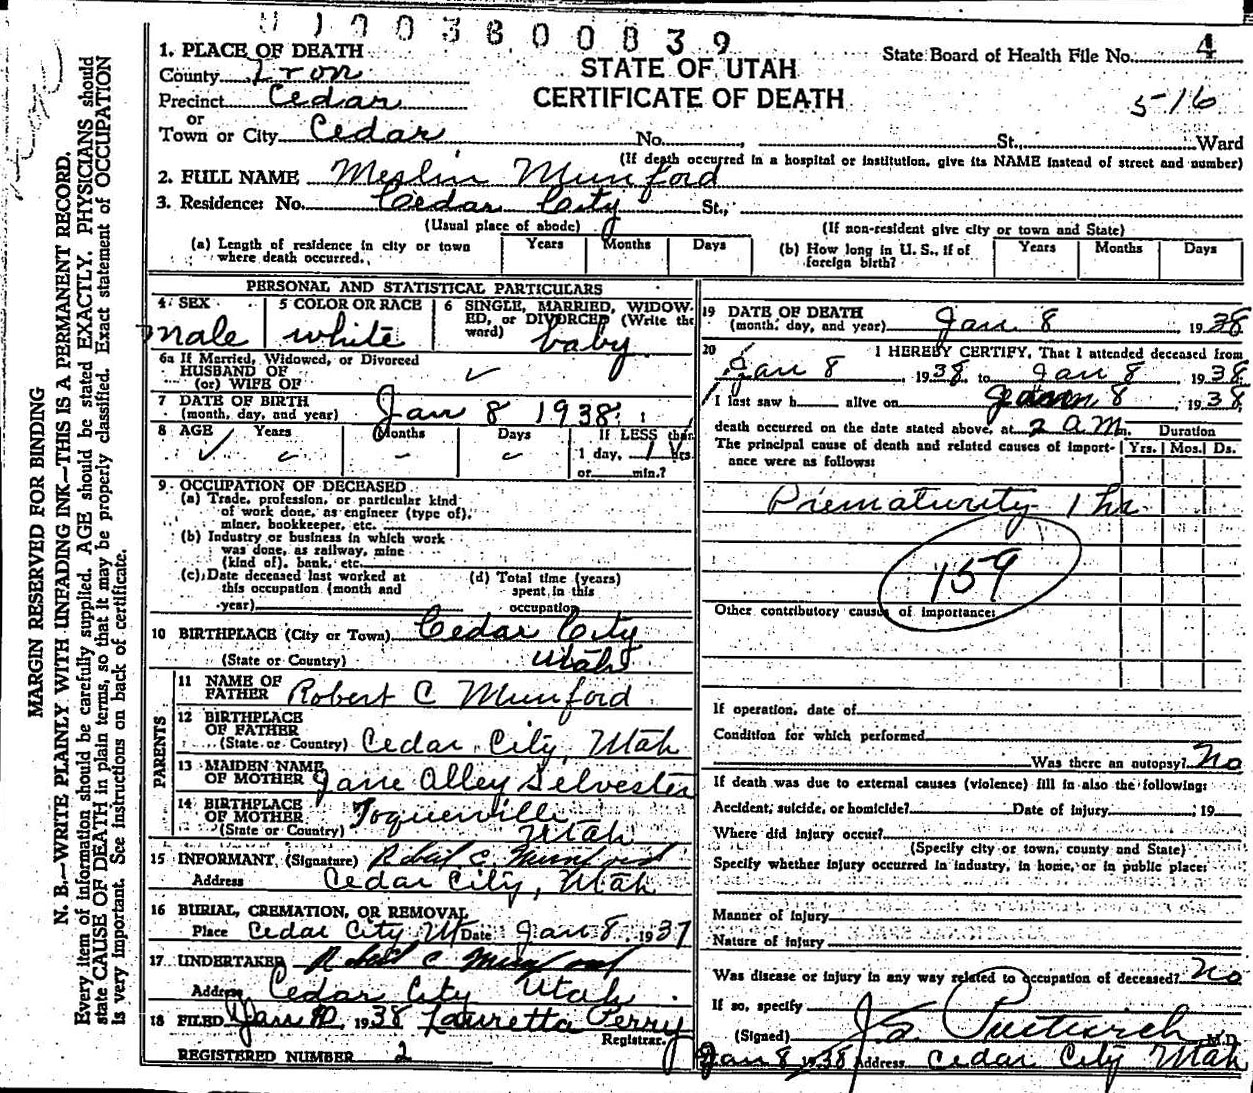 0 1 0 0 3 8 0 0 0 3 9
State Board of Health File No. 4
STATE OF UTAH
CERTIFICATE OF DEATH
5-16
1. PLACE OF DEATH
County Iron
Precinct Cedar
or
Town or City Cedar No. , St., Ward
(If death occurred in a hospital or institution, give its NAME instead of street and number)
2. FULL NAME Merlin Munford
3. Residence: No. Cedar City St.,
(Usual place of abode) (If non-resident give city or town and State)
(a) Length of residence in city or town where death occurred. Years Months Days
(b) How long in U. S., if of foreign birth? Years Months Days
PERSONAL AND STATISTICAL PARTICULARS
4 SEX male
5 COLOR OR RACE white
6 SINGLE, MARRIED, WIDOWED, or DIVORCED (Write the word) baby
6a If Married, Widowed, or Divorced
HUSBAND OF
(or) WIFE OF
7 DATE OF BIRTH
(month, day, and year) Jan 8 1938
8 AGE Years Months Days If LESS than
1 day, 1 hrs.
or min.?
9. OCCUPATION OF DECEASED
(a) Trade, profession, or particular kind
of work done, as engineer (type of),
miner, bookkeeper, etc.
(b) Industry or business in which work
was done, as railway, mine
(kind of), bank, etc.
(c) Date deceased last worked at
this occupation (month and
year)
(d) Total time (years)
spent in this
occupation
10 BIRTHPLACE (City or Town) Cedar City
(State or Country) Utah
PARENTS
11 NAME OF
FATHER Robert C Munford
12 BIRTHPLACE
OF FATHER
(State or Country) Cedar City, Utah
13 MAIDEN NAME
OF MOTHER Jane Alley Selvester
14 BIRTHPLACE
OF MOTHER Toquerville
(State or Country) Utah
15 INFORMANT (Signature) Robert C. Munford
Address Cedar City, Utah
16 BURIAL, CREMATION, OR REMOVAL
Place Cedar City Ut Date Jan 8, 1937
17 UNDERTAKER Robert C Munford
Address Cedar City Utah
18 FILED Jan 10, 1938 Lauretta Perry
Registrar.
REGISTERED NUMBER 2
19 DATE OF DEATH
(month, day, and year) Jan 8 1938
20 I HEREBY CERTIFY, That I attended deceased from
Jan 8, 1938, to Jan 8, 1938
I last saw h alive on Jan 8, 1938
death occurred on the date stated above, at 2 a.m. Duration
The principal cause of death and related causes of importance were as follows: Yrs. Mos. Ds.
Prematurity 1 hr.
159
Other contributory causes of importance:
If operation, date of
Condition for which performed
Was there an autopsy? No
If death was due to external causes (violence) fill in also the following:
Accident, suicide, or homicide? Date of injury 19
Where did injury occur?
(Specify city or town, county and State)
Specify whether injury occurred in industry, in home, or in public place:
Manner of injury
Nature of injury
Was disease or injury in any way related to occupation of deceased? No
If so, specify
(Signed) M.D.
Jan 8 1938 Address Cedar City Utah
MARGIN RESERVED FOR BINDING
N. B.—WRITE PLAINLY WITH UNFADING INK—THIS IS A PERMANENT RECORD.
Every item of information should be carefully supplied. AGE should be stated EXACTLY. PHYSICIANS should
state CAUSE OF DEATH in plain terms, so that it may be properly classified. Exact statement of OCCUPATION
is very important. See instructions on back of certificate.